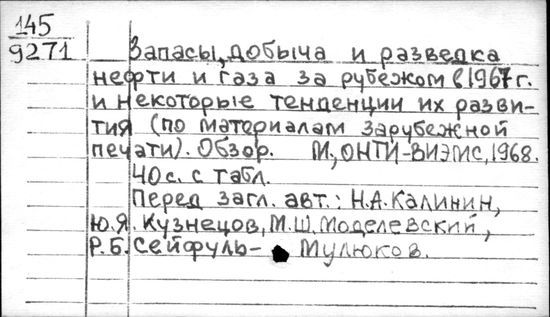 145
9271 Запасы, добыча и разведка
нефти и газа за рубежом в 1967 г.
и некоторые тенденции их разви-
тия (по материалам зарубежной
печати). Обзор. М., ОНТИ-ВИЭМС, 1968.
40 с. с табл.
Перед загл. авт.: Н.А. Калинин,
Ю.Я. Кузнецов, М.Ш. Моделевский,
Р.Б. Сейфуль- Мулюков.